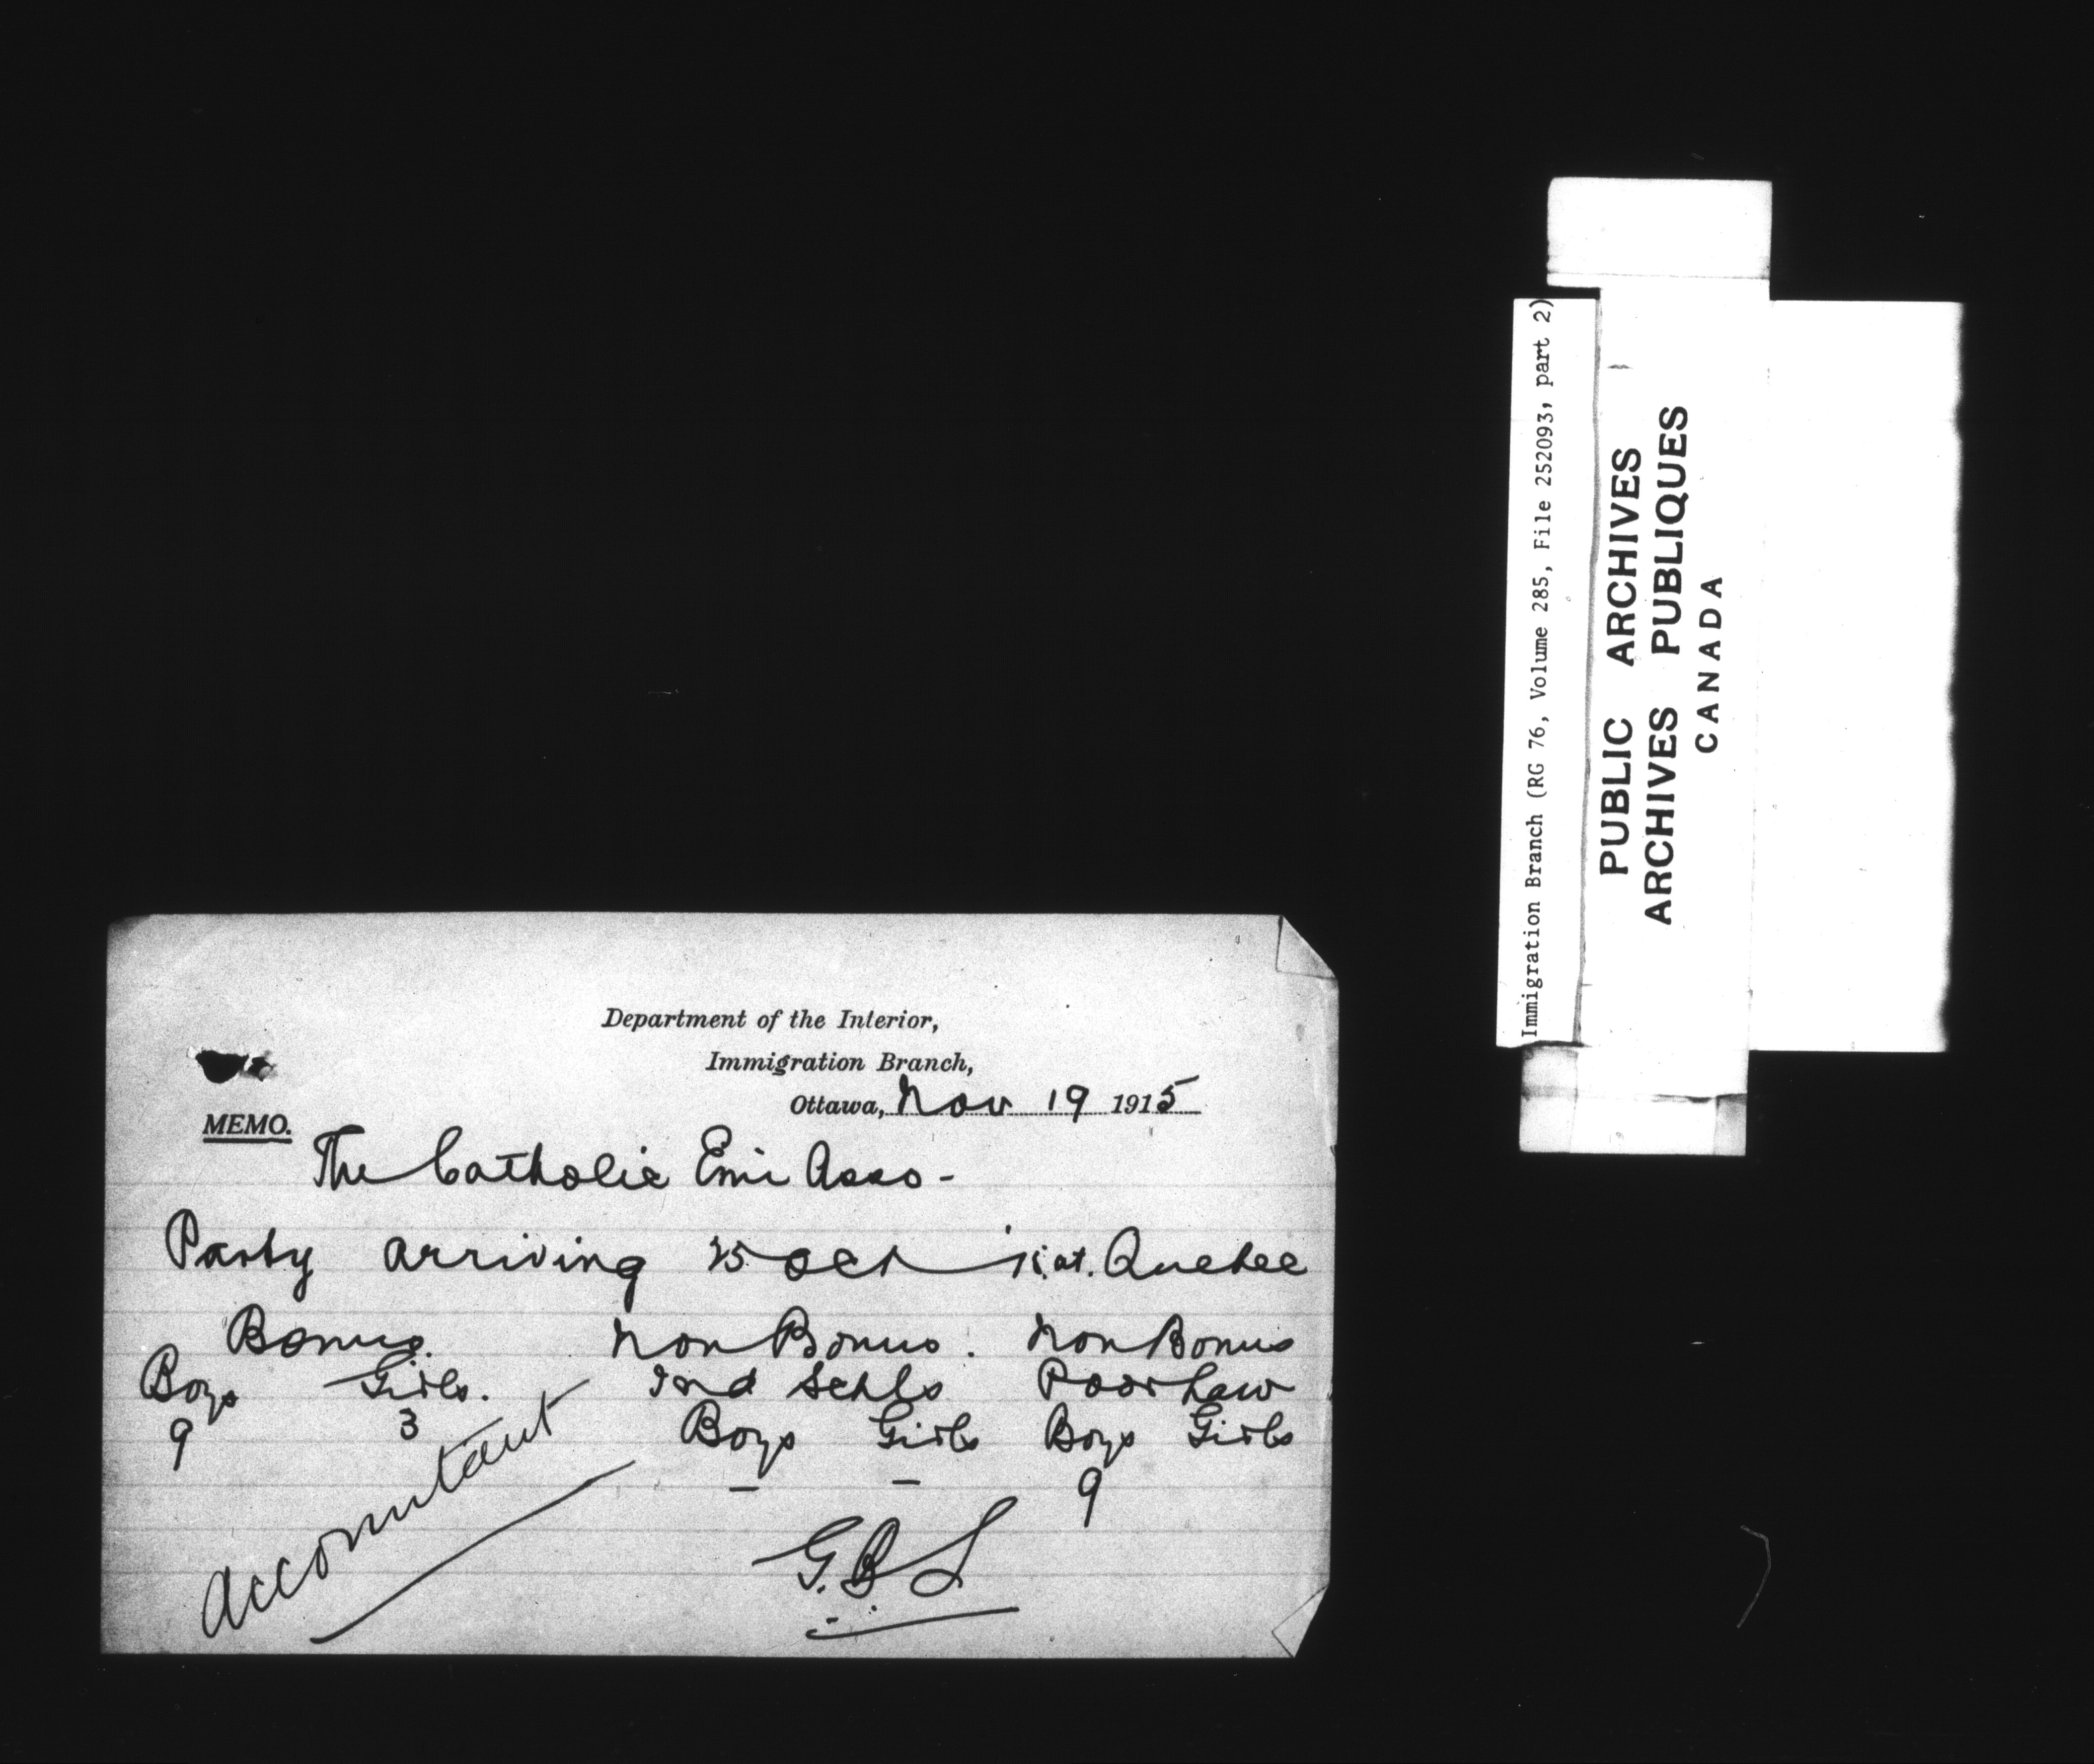 Department of the Interior,
Immigration Branch,
Ottawa, Nov 19 1915
MEMO.
The Catholic Emi Asso -
Party arriving 25 Oct at Quebec
Bonus. Non Bonus. Non Bonus
Boys Girls. Ind Schls Poor Law
9 3 Boys Girls Boys Girls
- - 9
Accountant
G.B.S
Immigration Branch (RG 76, Volume 285, File 252093, part 2)
PUBLIC ARCHIVES
ARCHIVES PUBLIQUES
CANADA